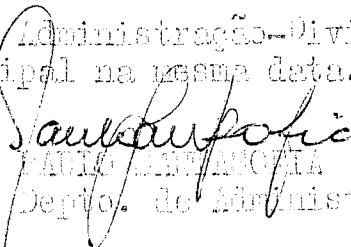 Administração Div
ipal na mesma data.
PAULO
Depto. de Adminis